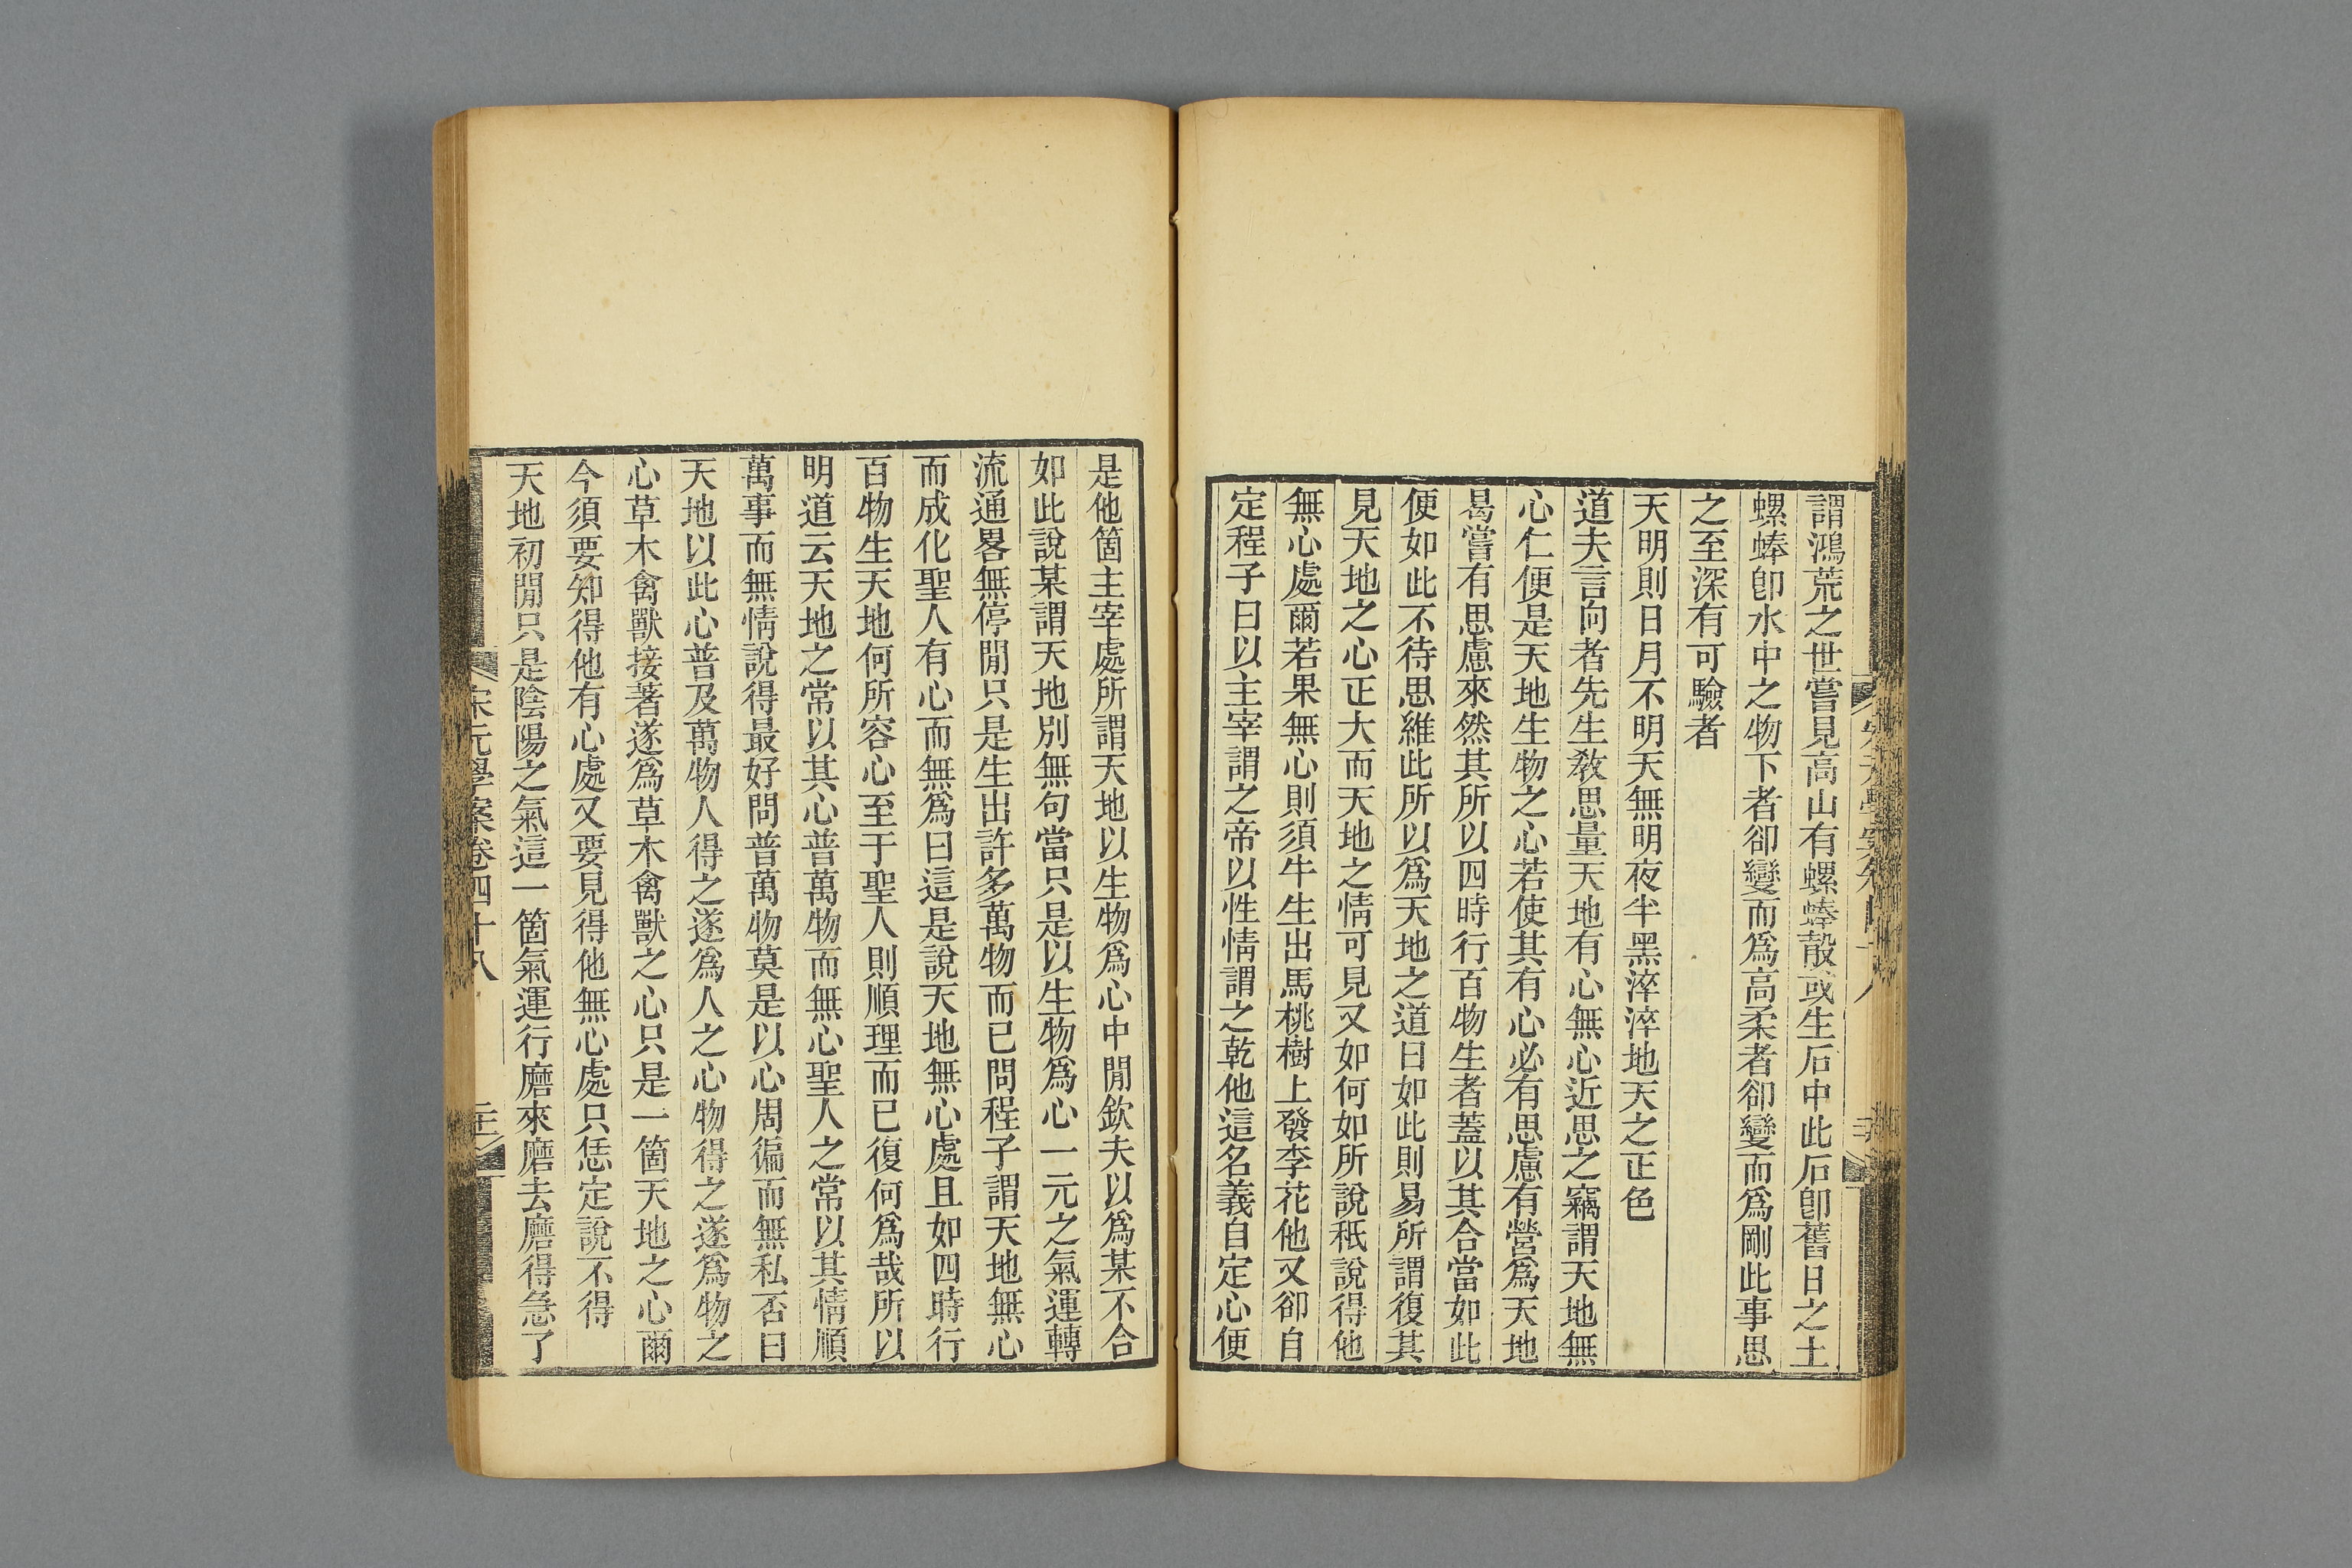 謂鴻荒之世嘗見高山有螺蜯殼或生石中此石卽舊日之土
螺蜯卽水中之物下者卻變而爲高柔者卻變而爲剛此事思
之至深有可驗者
天明則日月不明天無明夜半黑淬淬地天之正色
道夫言向者先生敎思量天地有心無心近思之竊謂天地無
心仁便是天地生物之心若使其有心必有思慮有營爲天地
曷嘗有思慮來然其所以四時行百物生者蓋以其合當如此
便如此不待思維此所以爲天地之道曰如此則易所謂復其
見天地之心正大而天地之情可見又如何如所說秖說得他
無心處爾若果無心則須牛生出馬桃樹上發李花他又卻自
定程子曰以主宰謂之帝以性情謂之乾他這名義自定心便
是他箇主宰處所謂天地以生物爲心中閒欽夫以爲某不合
如此說某謂天地別無句當只是以生物爲心一元之氣運轉
流通畧無停閒只是生出許多萬物而已問程子謂天地無心
而成化聖人有心而無爲曰這是說天地無心處且如四時行
百物生天地何所容心至于聖人則順理而已復何爲哉所以
明道云天地之常以其心普萬物而無心聖人之常以其情順
萬事而無情說得最好問普萬物莫是以心周徧而無私否曰
天地以此心普及萬物人得之遂爲人之心物得之遂爲物之
心草木禽獸接著遂爲草木禽獸之心只是一箇天地之心爾
今須要知得他有心處又要見得他無心處只恁定說不得
天地初閒只是陰陽之氣這一箇氣運行磨來磨去磨得急了
宋元學案卷四十八